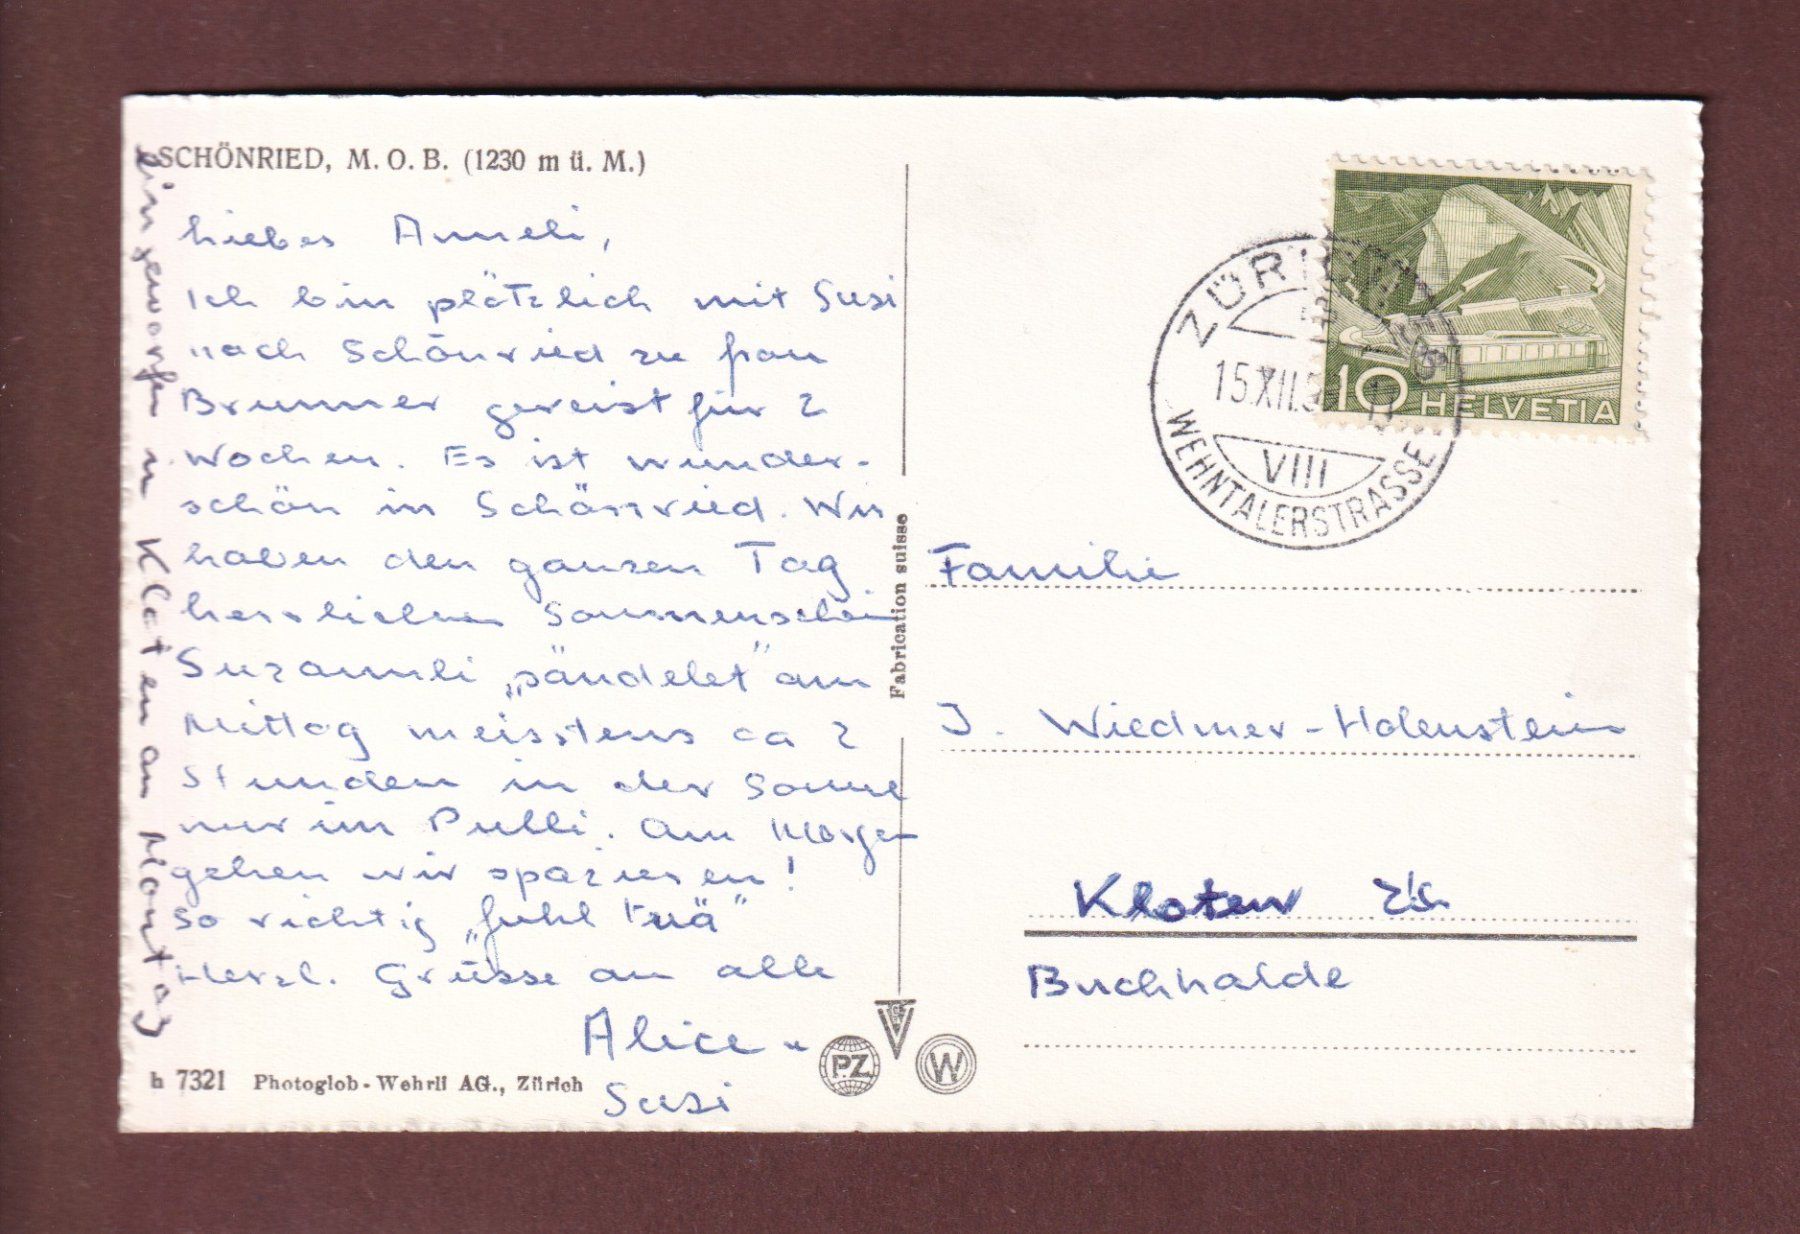 SCHÖNRIED, M. O. B. (1230 m ü. M.)
liebes Anneli,
Ich bin plötzlich mit Susi
nach Schönried zu frau
Brunner gereist für 2
Wochen. Es ist wunder-
schön in Schönried. Wir
haben den ganzen Tag
herrlichen Sonnenschein
Suzanneli „pändelet" am
Mittag meisstens ca 2
Stunden in der Sonne
nur im Pulli. Am Morgen
gehen wir spazieren!
so richtig „fuhl
Herzl. Grüsse an alle
Alice u
Susi
h 7321 Photoglob-Wehrli AG., Zürich
eingeworfen in Kloten am Montag
Fabrication suisse
PZ
W
ZÜRICH
15.XII.5
10 HELVETIA
VIII
WEHNTALERSTRASSE
Familie
J. Wiedmer-Holenstein
Kloten Zh
Buchhalde